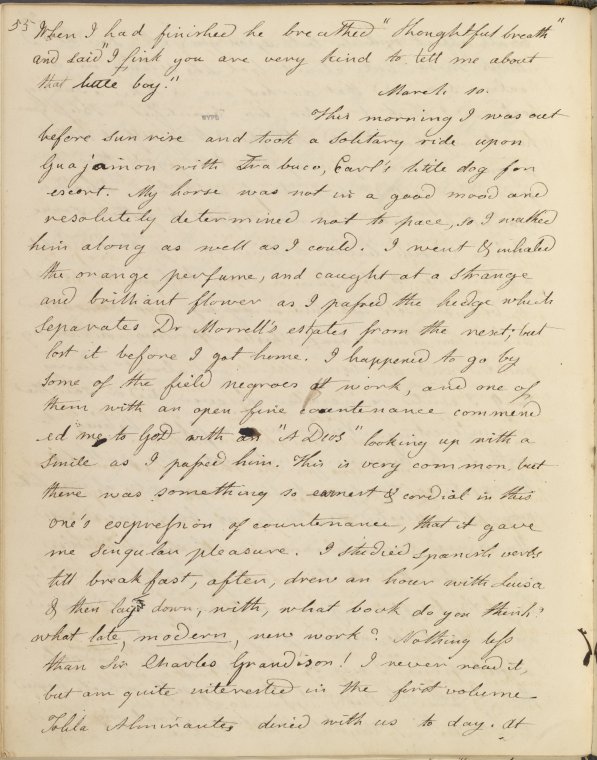 55 When I had finished he breathed "thoughtful breath"
and said "I fink you are very kind to tell me about
that little boy."
March 10.
This morning I was out
before sun rise and took a solitary ride upon
Guajamon with Trabuco, Carl's little dog for
escort. My horse was not in a good mood and
resolutely determined not to pace, so I walked
him along as well as I could. I went & inhaled
the orange perfume, and caught at a strange
and brilliant flower as I passed the hedge which
separates Dr Morrell's estates from the next; but
lost it before I got home. I happened to go by
some of the field negroes at work, and one of
them with an open fine countenance commend
ed me to God with an "A Dios" looking up with a
smile as I passed him. This is very common but
there was something so earnest & cordial in this
one's expression of countenance, that it gave
me singular pleasure. I studied Spanish verbs
till breakfast, after, drew an hour with Luisa
& then lay down, with, what book do you think?
what late, modern, new work? Nothing less
than Sir Charles Grandison! I never read it,
but am quite interested in the first volume
Tolila Almirantes dined with us to day. At